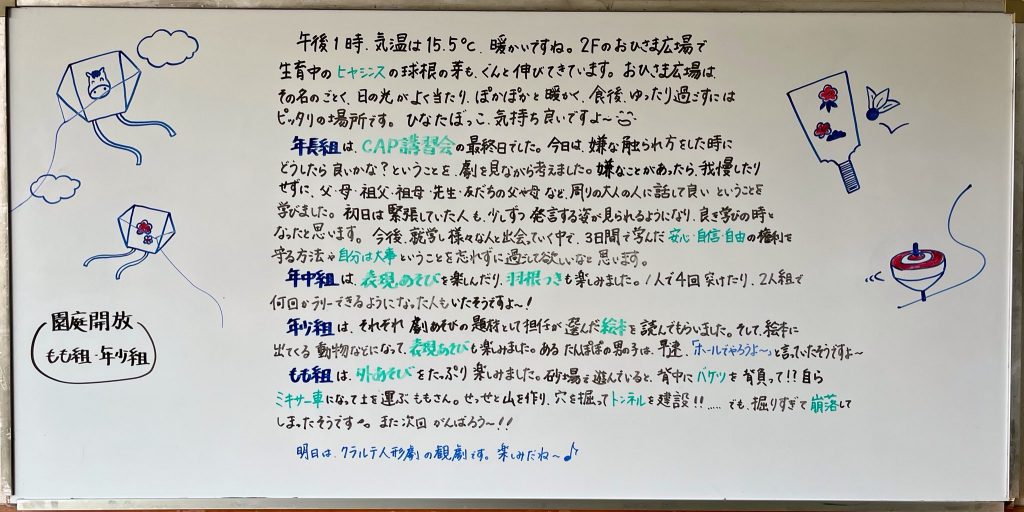 午後1時、気温は15.5℃、暖かいですね。2Fのおひさま広場で
生育中のヒヤシンスの球根の芽も、ぐんと伸びてきています。おひさま広場は、
その名のごとく、日の光がよく当たり、ぽかぽかと暖かく、食後、ゆったり過ごすには
ピッタリの場所です。ひなたぼっこ、気持ち良いですよ〜
年長組は、CAP講習会の最終日でした。今日は、嫌な触られ方をした時に
どうしたら良いかな?ということを、劇を見ながら考えました。嫌なことがあったら、我慢したり
せずに、父・母・祖父・祖母・先生・友だちの父や母など、周りの大人の人に話して良いということを
学びました。初日は緊張していた人も、少しずつ発言する姿が見られるようになり、良き学びの時と
なったと思います。今後、就学し様々な人と出会っていく中で、3日間で学んだ安心・自信・自由の権利を
守る方法や自分は大事ということを忘れずに過ごして欲しいなと思います。
年中組は、表現あそびを楽しんだり、羽根つきも楽しみました。1人で4回突けたり、2人組で
何回かラリーできるようになった人もいたそうですよ〜!
年少組は、それぞれ劇あそびの題材として担任が選んだ絵本を読んでもらいました。そして、絵本に
出てくる動物などになって、表現あそびも楽しみました。あるたんぽぽの男の子は、早速、「ホールでやろうよ〜」と言っていたそうですよ〜
もも組は、外あそびをたっぷり楽しみました。砂場で遊んでいると、背中にバケツを背負って!!自ら
ミキサー車になって土を運ぶももさん。せっせと山を作り、穴を掘ってトンネルを建設!!……でも、掘りすぎて崩落して
しまったそうです。また次回がんばろう〜!!
明日は、クラルテ人形劇の観劇です。楽しみだね〜♪
園庭開放
もも組・年少組